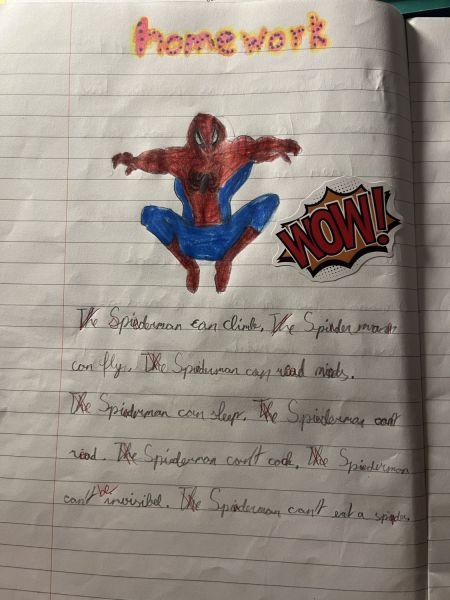 homework
WOW!
The Spiederman can climb. The Spinder man
can fly. The Spiederman can read minds.
The Spiederman can sleep. The Spiederman can't
read. The Spiederman can't cook. The Spiederman
can't be invisibel. The Spiederman can't eat a spider.